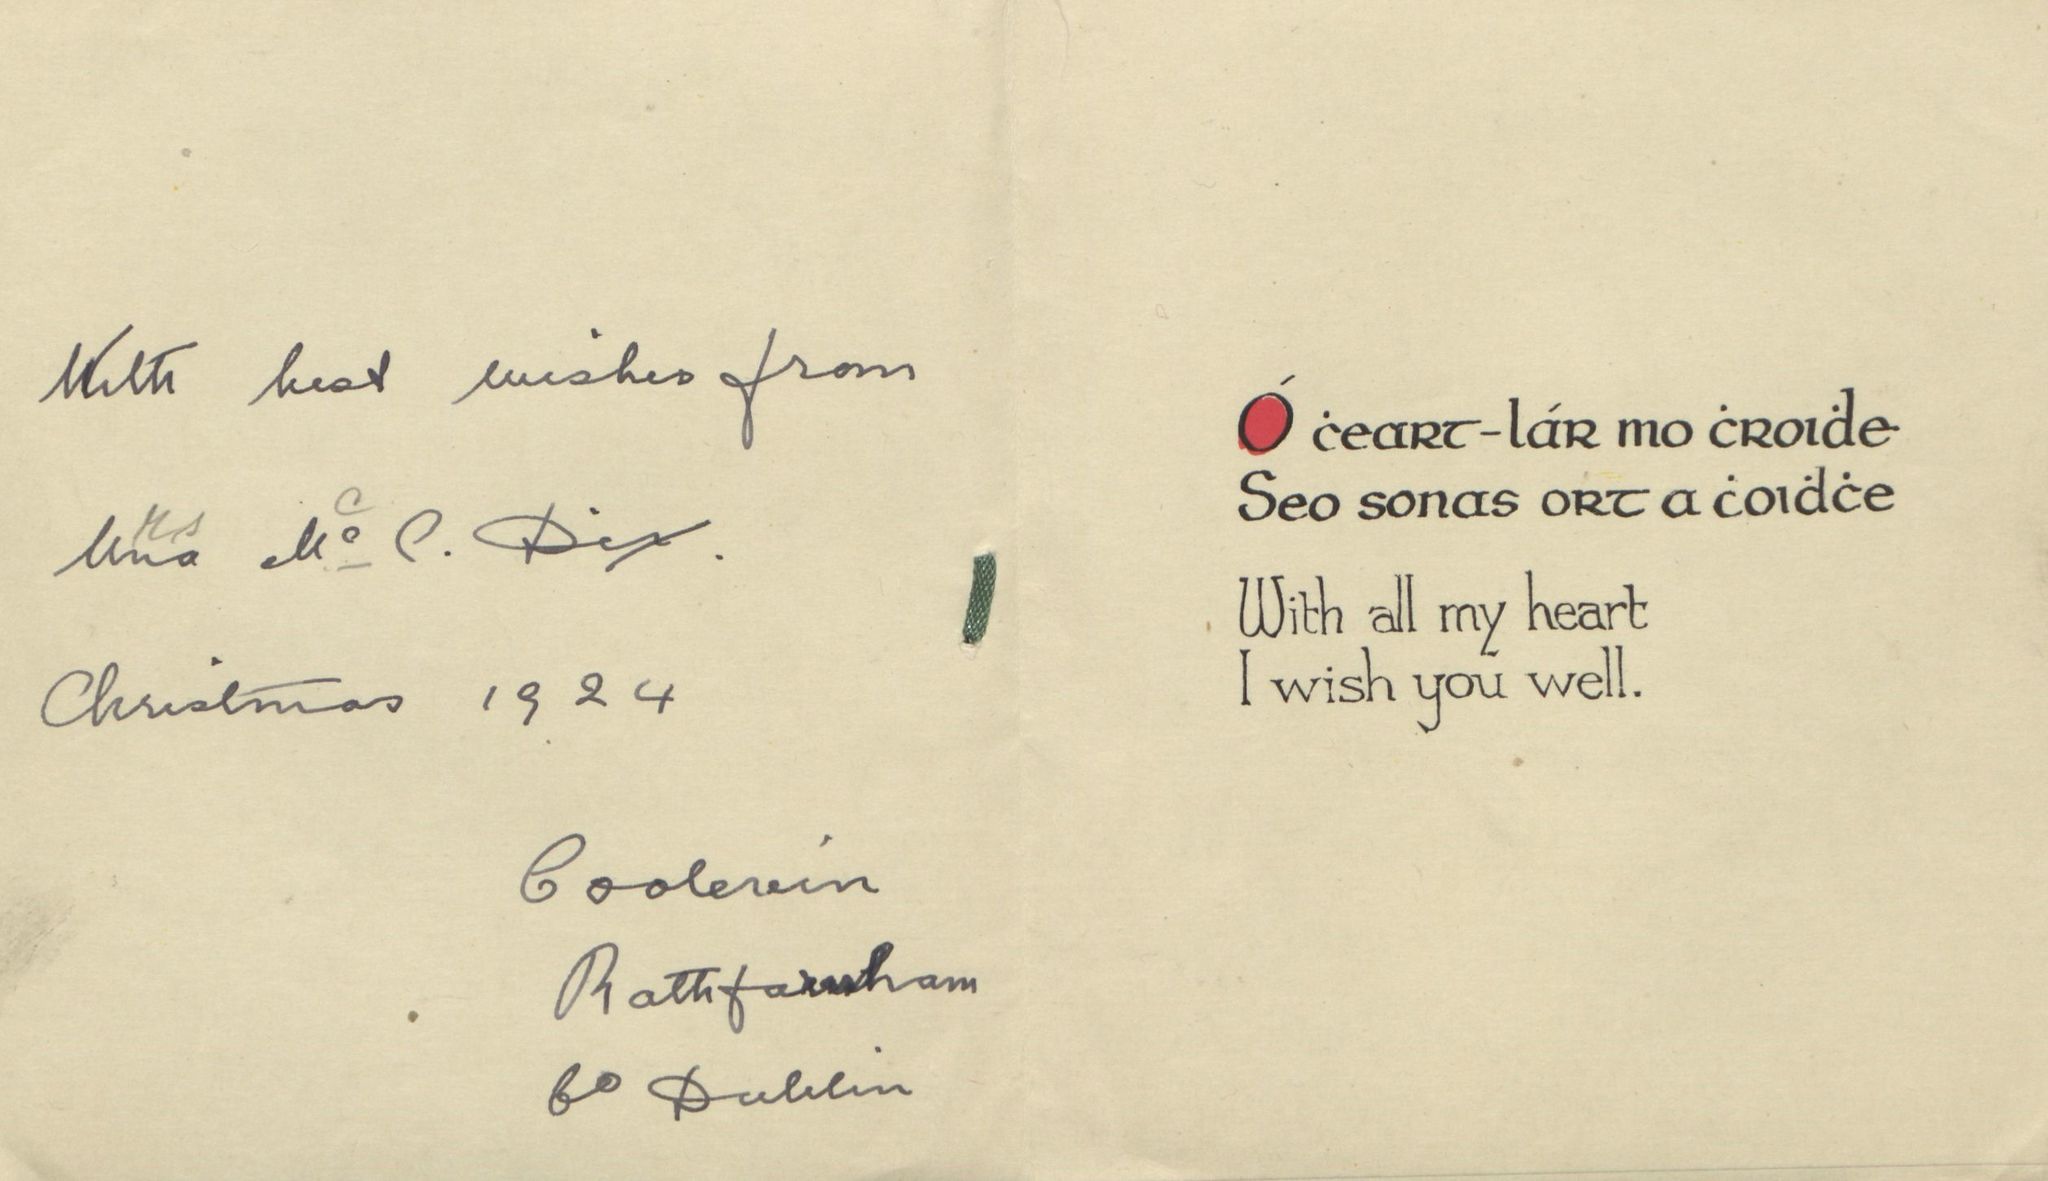 With best wishes from
Mrs
Una Mc C. Dix.
Christmas 1924
Rathfarnham
Co Dublin
Ó ċeart-lár mo ċroiḋe
Seo sonas ort a ċoiḋċe
With all my heart
I wish you well.